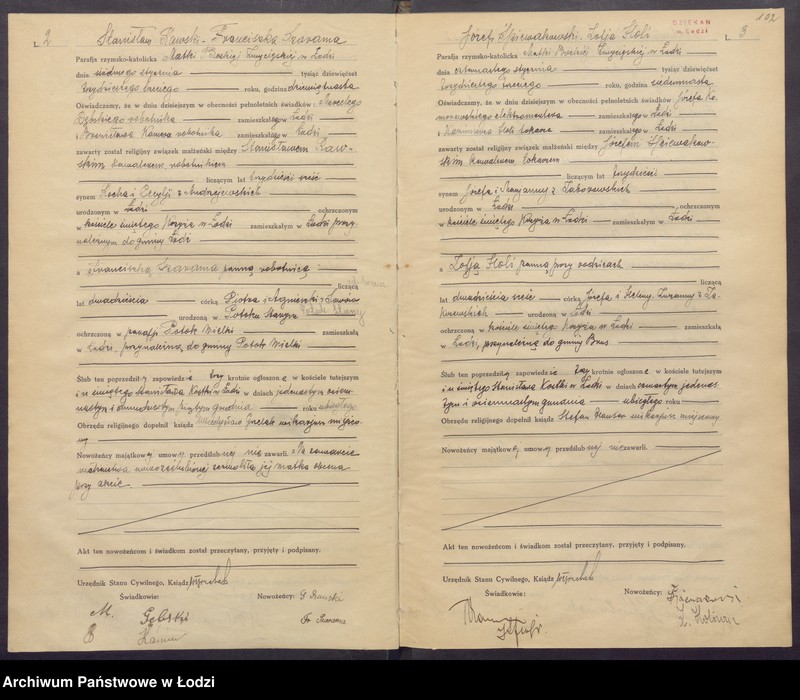 L. 2
Stanisław Rawski - Franciszka Szarama
Parafja rzymsko-katolicka Matki Boskiej Zwycięskiej w Łodzi
dnia siódmego stycznia tysiąc dziewięćset
trzydziestego trzeciego roku, godzina dziewiętnasta
Oświadczamy, że w dniu dzisiejszym w obecności pełnoletnich świadków: Marcelego
robotnika zamieszkałego w Łodzi
i Bronisława robotnika zamieszkałego w Łodzi
zawarty został religijny związek małżeński między Stanisławem Raw-
skim kawalerem robotnikiem
liczącym lat trzydzieści sześć
synem Rocha i z Andrzejewskich
urodzonym w Łodzi ochrzczonym
w kościele świętego Krzyża w Łodzi zamieszkałym w Łodzi przy-
należnym do gminy Łodzi
a Franciszką Szarama panną robotnicą
liczącą
lat dwadzieścia córką Piotra i Agnieszki
urodzoną w Potoku Starym
ochrzczoną w parafji Potok Wielki zamieszkałą
w Łodzi, przynależną do gminy Potok Wielki
Ślub ten poprzedziły zapowiedzie trzy krotnie ogłoszone w kościele tutejszym
i w świętego Stanisława Kostki w Łodzi w dniach
grudnia roku ubiegłego
Obrzędu religijnego dopełnił ksiądz wikarjusz miejsco-
wy
Nowożeńcy majątkowej umowy przedślubnej nie zawarli. Na zawarcie
małżeństwa nowozaślubionej zezwoliła jej matka obecna
przy akcie.
Akt ten nowożeńcom i świadkom został przeczytany, przyjęty i podpisany.
Urzędnik Stanu Cywilnego, Ksiądz
Świadkowie: Nowożeńcy: S Rawski
M. Fr Szarama
102
DZIEKAN
m. Łodzi
L. 3
Józef Śpiewakowski. Zofja Stoli
Parafja rzymsko-katolicka Matki Boskiej Zwycięskiej w Łodzi
dnia czternastego stycznia tysiąc dziewięćset
trzydziestego trzeciego roku, godzina siedemnasta
Oświadczamy, że w dniu dzisiejszym w obecności pełnoletnich świadków: Józefa Ko-
morowskiego elektromontera zamieszkałego w Łodzi
i Kazimierza Stoli tokarza zamieszkałego w Łodzi
zawarty został religijny związek małżeński między Józefem Śpiewakow-
skim kawalerem tokarzem
liczącym lat trzydzieści
synem Józefa i Marjanny z Zaborowskich
urodzonym w Łodzi ochrzczonym
w kościele świętego Krzyża w Łodzi zamieszkałym w Łodzi
a Zofją Stoli panną przy rodzicach
liczącą
lat dwadzieścia sześć córką Józefa i Heleny Zuzanny z
urodzoną w Łodzi
ochrzczoną w kościele świętego Krzyża w Łodzi zamieszkałą
w Łodzi, przynależną do gminy Brus
Ślub ten poprzedziły zapowiedzie trzy krotnie ogłoszone w kościele tutejszym
i w świętego Stanisława Kostki w Łodzi w dniach czwartym jedenas-
tym i osiemnastym grudnia ubiegłego roku
Obrzędu religijnego dopełnił ksiądz Stefan wikarjusz miejscowy
Nowożeńcy majątkowej umowy przedślubnej nie zawarli.
Akt ten nowożeńcom i świadkom został przeczytany, przyjęty i podpisany.
Urzędnik Stanu Cywilnego, Ksiądz
Świadkowie: Nowożeńcy:
Archiwum Państwowe w Łodzi